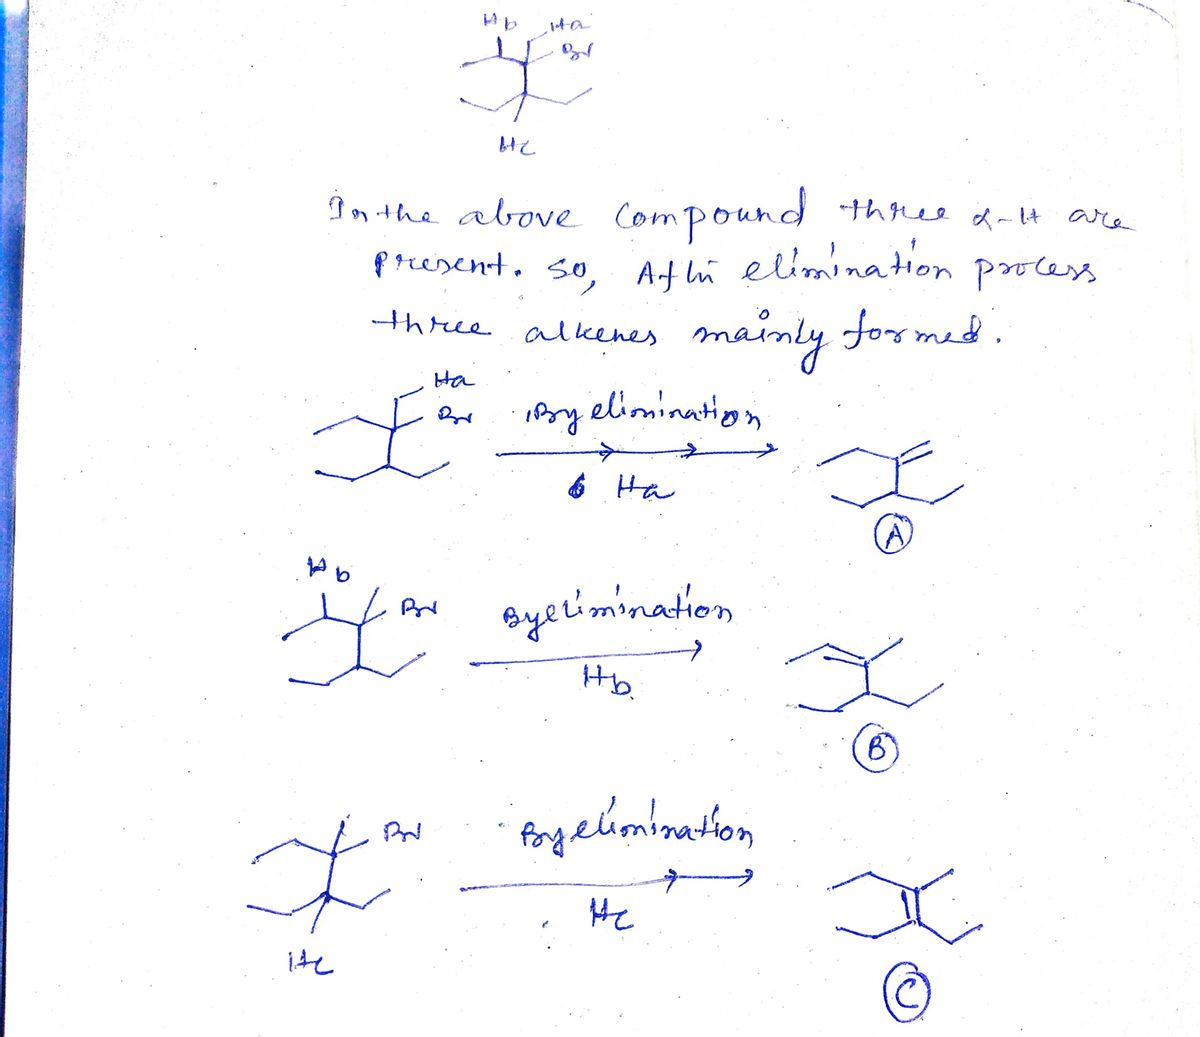 Hb Ha
Br
Hc
In the above compound three α-H are
present. so, Aftri elimination process
three alkenes mainly formed.
Ha
Br By elimination
Ha
A
Hb
Br By elimination
Hb
B
Br By elimination
Hc
Hc
C